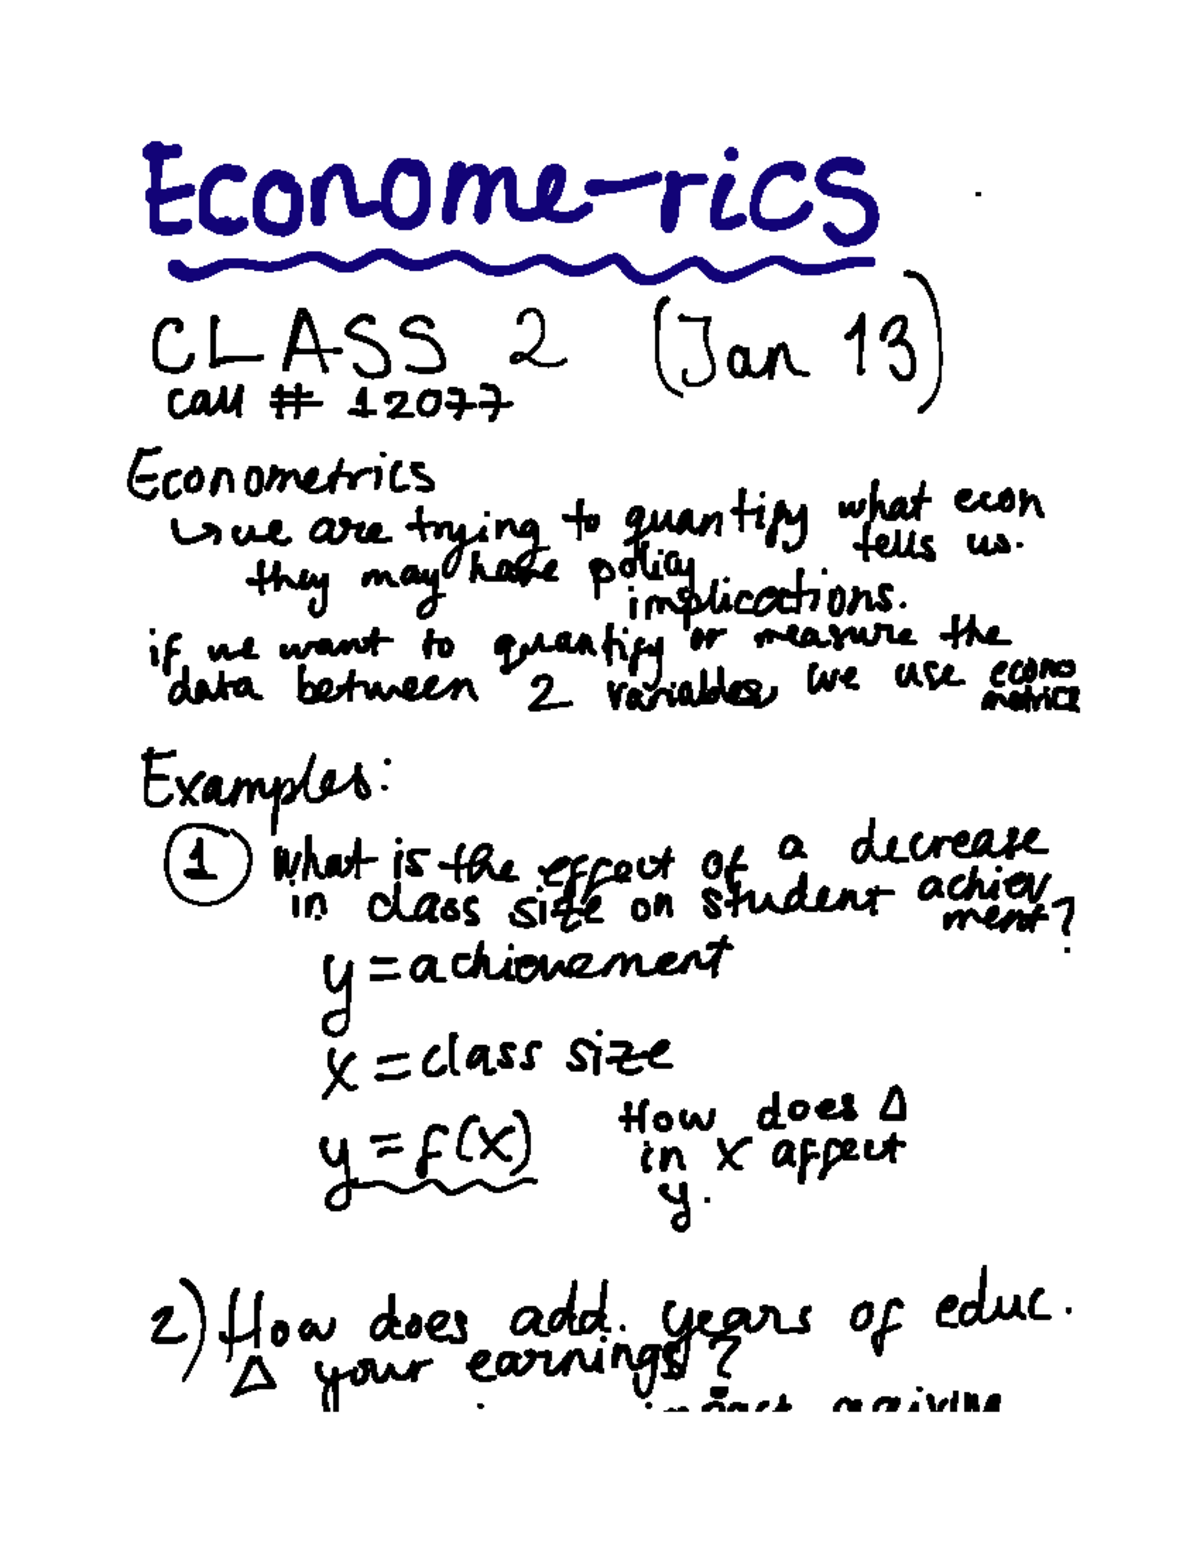 Econome-rics
CLASS 2 (Jan 13)
call # 12077
Econometrics
↳ we are trying to quantify what econ
tells us.
they may have policy
implications.
if we want to quantify or measure the
data between 2 variables we use econo
metrics
Examples:
1 What is the effect of a decrease
in class size on student achiev
ment?
y = achievement
x = class size
y = f(x) How does Δ
in x affect
y.
2) How does add. years of educ.
Δ your earnings?
impact